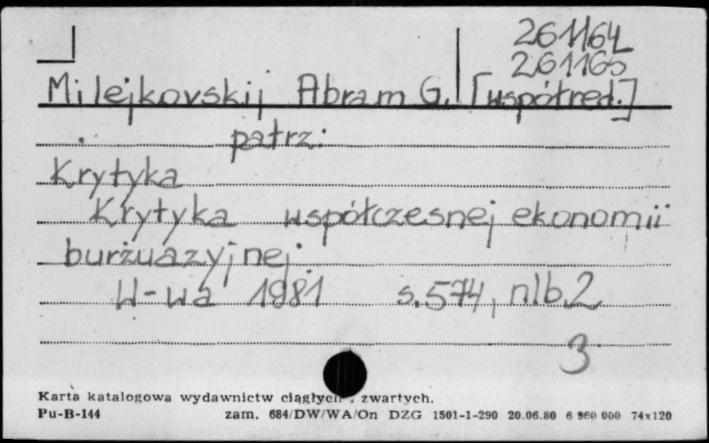 261164
261165
Milejkovskij Abram G. [współred.]
patrz:
Krytyka
Krytyka współczesnej ekonomii
burżuazyjnej.
W-wa 1981 s. 574, nlb 2
3
Karta katalogowa wydawnictw ciągłych i zwartych.
Pu-B-144 zam. 684/DW/WA/On DZG 1501-1-290 20.06.80 6 960 000 74x120